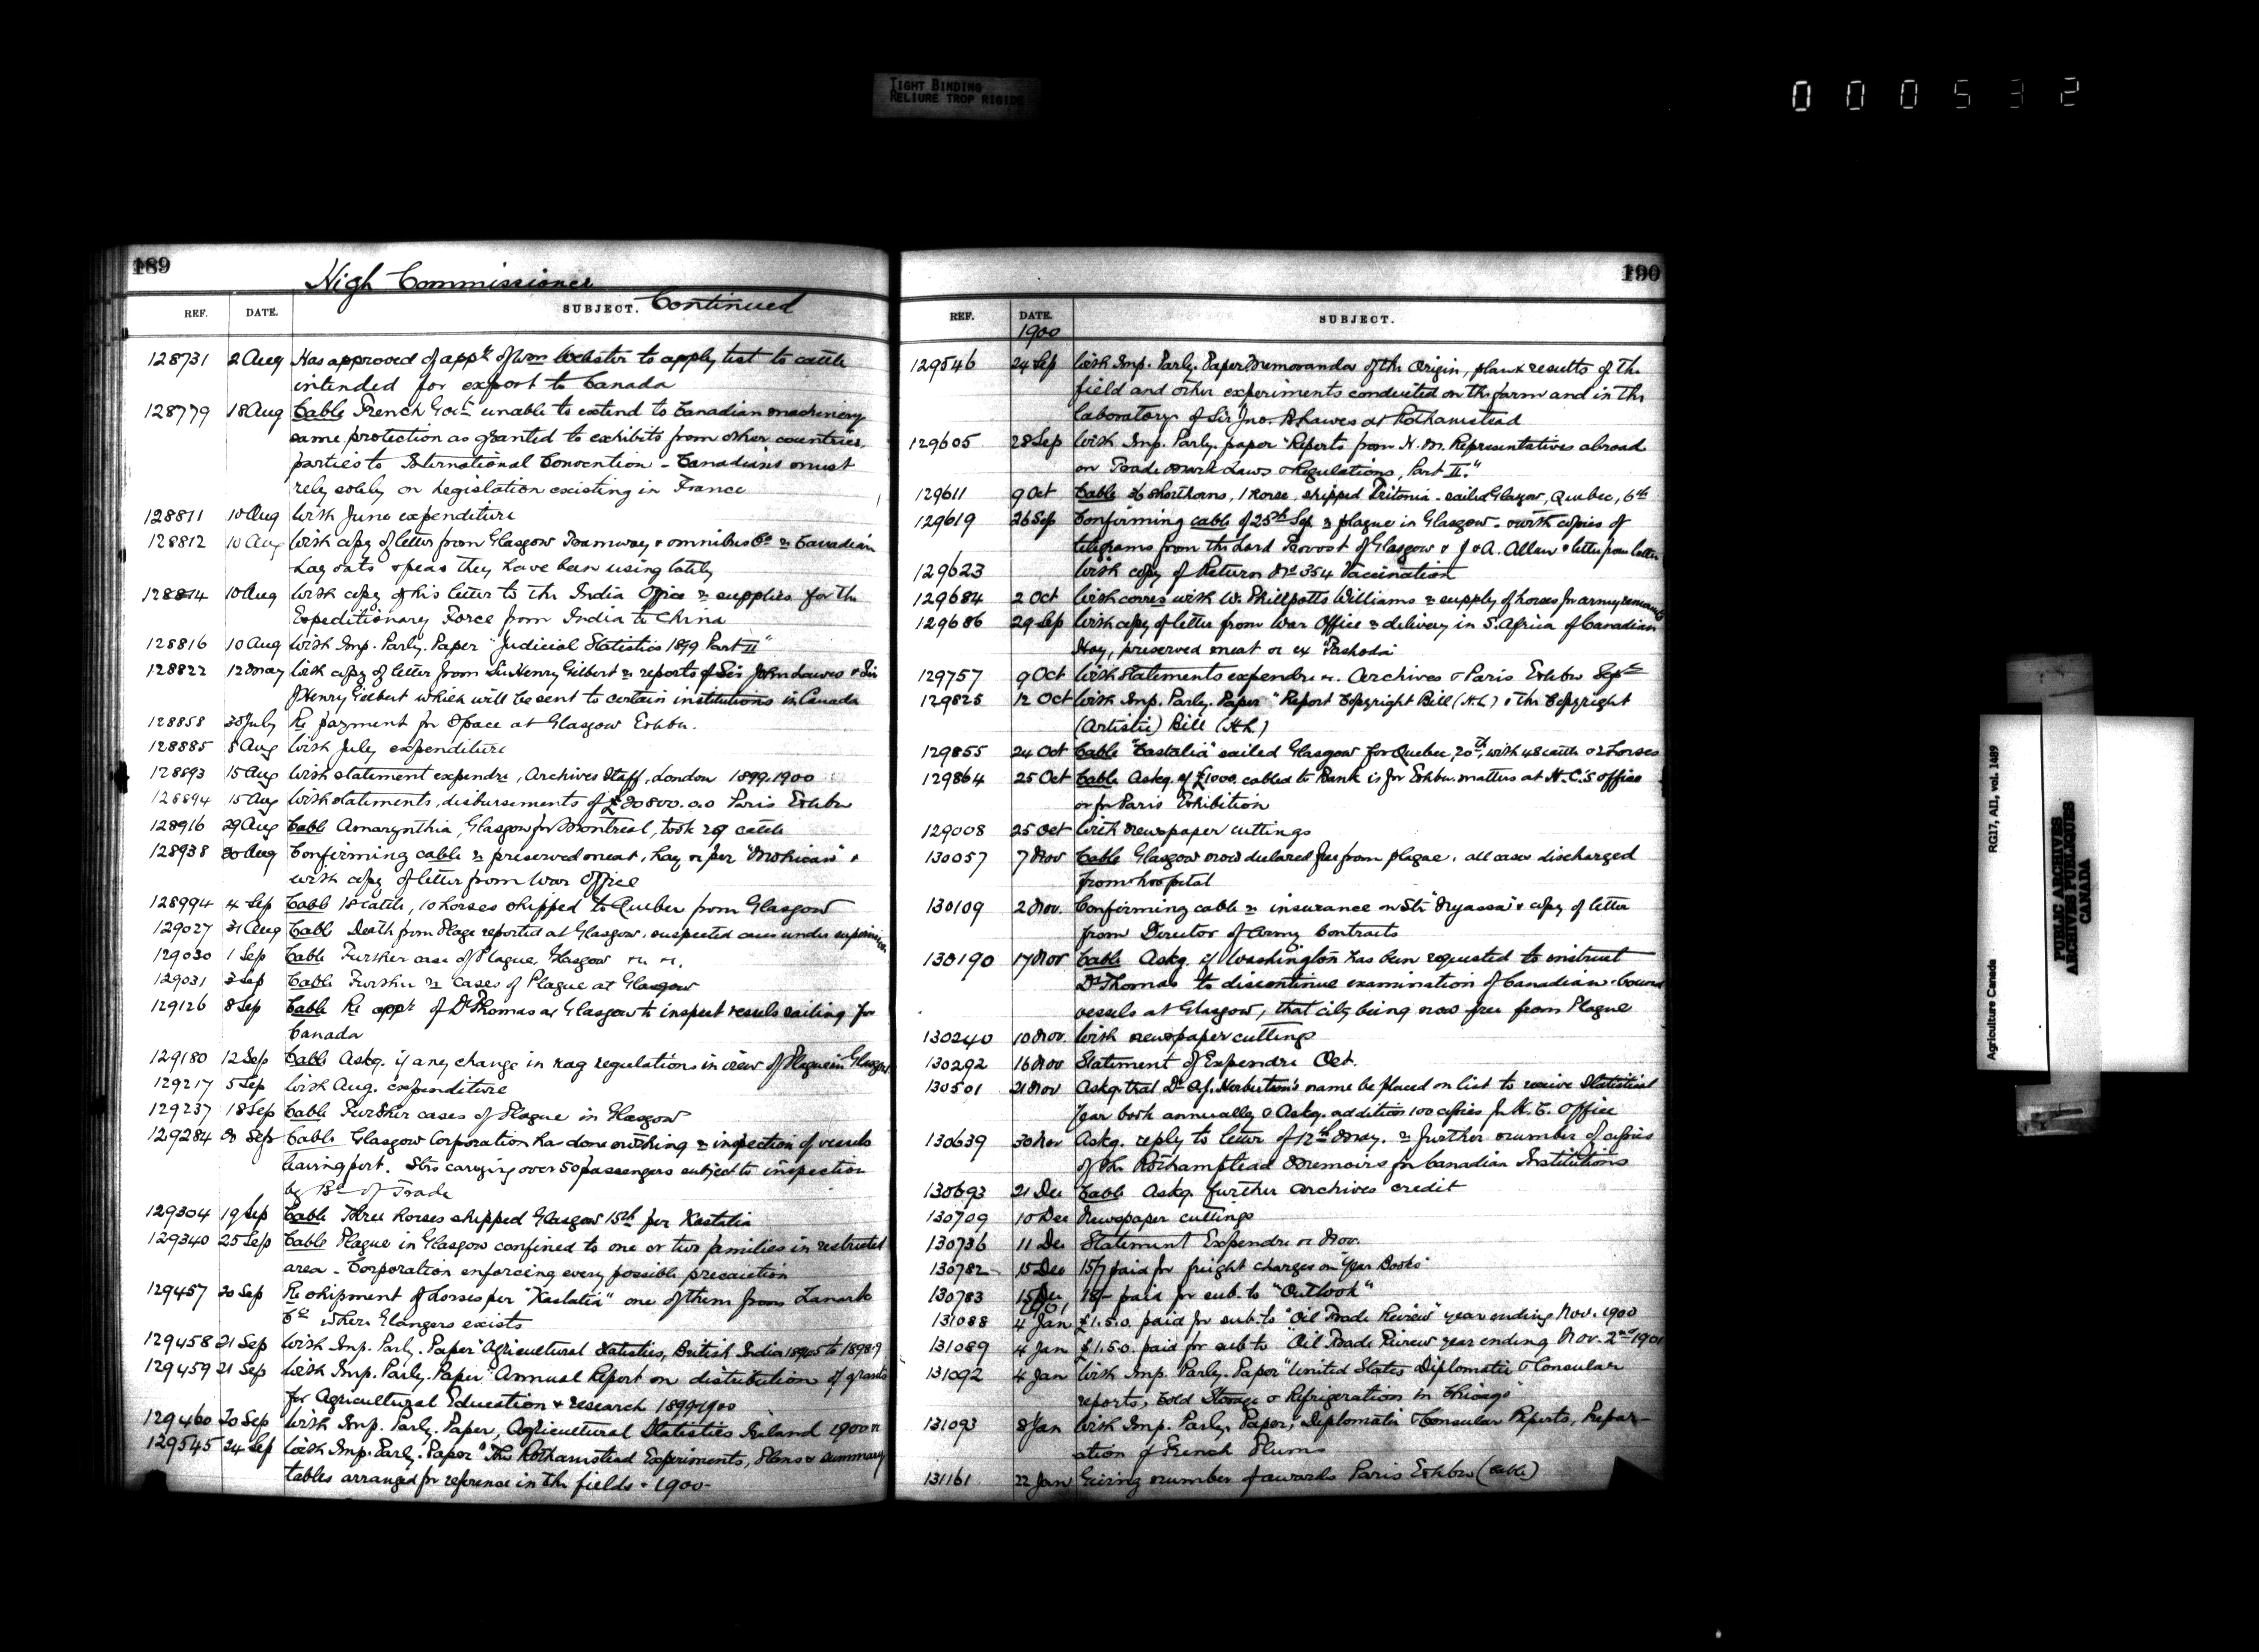 TIGHT BINDING
RELIURE TROP RIGIDE
000532
189
High Commissioner
Continued
REF. DATE. SUBJECT.
128731 2 Aug Has approved of appt of Wm Webster to apply test to cattle
intended for export to Canada
128779 18 Aug Cable French Govt unable to extend to Canadian machinery
same protection as granted to exhibits from other countries,
parties to International Convention - Canadians must
rely solely on legislation existing in France
128811 10 Aug With June expenditure
128812 10 Aug With copy of letter from Glasgow Tramway & omnibus Co re Canadian
hay oats & peas they have been using lately
128814 10 Aug With copy of his letter to the India Office re supplies for the
Expeditionary Force from India to China
128816 10 Aug With Imp. Parly. Paper "Judicial Statistics 1899 Part II"
128822 12 May With copy of letter from Sir Henry Gilbert re reports of Sir John Lawes & Sir
J Henry Gilbert which will be sent to certain institutions in Canada
128858 30 July Re payment for space at Glasgow Exhbn.
128885 8 Aug With July expenditure
128893 15 Aug With statement expendre, Archives Staff, London 1899-1900
128894 15 Aug With statements, disbursements of £20800.0.0 Paris Exhbn
128916 29 Aug Cable Amarynthia, Glasgow for Montreal, took 29 cattle
128938 30 Aug Confirming cable re preserved meat, hay &c per "Mohican" &
with copy of letter from War Office
128994 4 Sep Cable 18 cattle, 10 horses shipped to Quebec from Glasgow
129027 31 Aug Cable Death from Plage reported at Glasgow, suspected cases under supervision
129030 1 Sep Cable Further case of Plague, Glasgow
129031 3 Sep Cable Further re cases of Plague at Glasgow
129126 8 Sep Cable Re appt of Dr Thomas at Glasgow to inspect vessels sailing for
Canada
129180 12 Sep Cable Askg. if any change in rag regulations in view of Plague in Glasgow
129217 5 Sep With Aug. expenditure
129237 18 Sep Cable Further cases of Plague in Glasgow
129284 Sep Cable Glasgow Corporation has done nothing re inspection of vessels
leaving port. Strs carrying over 50 passengers subject to inspection
by Bd of Trade
129304 19 Sep Cable Three horses shipped Glasgow 15th per Kastalia
129340 25 Sep Cable Plague in Glasgow confined to one or two families in restricted
area - Corporation enforcing every possible precaution
129457 20 Sep Re shipment of horses per "Kastalia" one of them from Lanark
Co where Glanders exists
129458 21 Sep With Imp. Parly. Paper "Agricultural Statistics, British India 1894-5 to 1898-9
129459 21 Sep With Imp. Parly. Paper "Annual Report on distribution of grants
for Agricultural Education & research 1899-1900
129460 20 Sep With Imp. Parly. Paper, Agricultural Statistics Ireland 1900
129545 24 Sep With Imp. Parly. Paper "The Rothamstead Experiments, Plans & summary
tables arranged for reference in the fields - 1900 -
190
REF. DATE. SUBJECT.
1900
129546 24 Sep With Imp. Parly. Paper Memoranda of the Origin, plan & results of the
field and other experiments conducted on the farm and in the
laboratory of Sir Jno. B Lawes at Rothamstead
129605 28 Sep With Imp. Parly. paper "Reports from H. M. Representatives abroad
on Trade Mark Laws & Regulations, Part II."
129611 9 Oct Cable 36 shorthorns, 1 horse, shipped Tritonia - sailed Glasgow, Quebec, 6th
129619 26 Sep Confirming cable of 25th Sep re plague in Glasgow - & with copies of
telegrams from the Lard Provost of Glasgow & J & A. Allan & letter from latter
129623 With copy of Return No 354 Vaccination
129684 2 Oct With corres with W. Phillpotts Williams re supply of horses for army remounts
129686 29 Sep With copy of letter from War Office re delivery in S. Africa of Canadian
Hay, preserved meat &c ex "Pashoda"
129757 9 Oct With Statements expendre &c. Archives & Paris Exhbn Sept
129825 12 Oct With Imp. Parly. Paper "Report Copyright Bill (H.L) & the Copyright
(Artistic) Bill (H.L)
129855 24 Oct Cable "Castalia" sailed Glasgow for Quebec, 20th, with 48 cattle & 2 horses
129864 25 Oct Cable Askg. if £1000. cabled to Bank is for Exhbn. matters at H.C.'s office
or for Paris Exhibition
129008 25 Oct With newspaper cuttings
130057 7 Nov Cable Glasgow now declared free from plague, all cases discharged
from hospital
130109 2 Nov. Confirming cable re insurance on Str "Nyassa" & copy of letter
from Director of Army Contracts
130190 17 Nov Cable Askg. if Washington has been requested to instruct
Dr Thomas to discontinue examination of Canadian-bound
vessels at Glasgow, that city being now free from Plague
130240 10 Nov. With newspaper cuttings
130292 16 Nov Statement of Expendre Oct.
130501 21 Nov Askg. that Dr A.J. Herbertson's name be placed on list to receive Statistical
Year book annually & Askg. addition 100 copies for H.C. Office
130639 30 Nov Askg. reply to letter of 12th May. re further number of copies
of the Rothamstead Memoirs for Canadian Institutions
130693 21 Dec Cable Askg. further Archives credit
130709 10 Dec Newspaper cuttings
130736 11 Dec Statement Expendre &c Nov.
130782 15 Dec 15/7 paid for freight charges on "Year Books"
130783 15 Dec 18/- paid for sub. to "Outlook"
1901
131088 4 Jan £1.5.0. paid for sub. to "Oil Trade Review" year ending Nov. 1900
131089 4 Jan £1.5.0. paid for sub to "Oil Trade Review year ending Nov. 2nd 1901
131092 4 Jan With Imp. Parly. Paper "United States Diplomatic & Consular
reports, Cold Storage & Refrigeration in Chicago"
131093 8 Jan With Imp. Parly. Paper, "Diplomatic & Consular Reports, Prepar-
ation of French Plums
131161 22 Jan Giving number of awards Paris Exhbn (cable)
Agriculture Canada RG17, AII, vol. 1489
PUBLIC ARCHIVES
ARCHIVES PUBLIQUES
CANADA